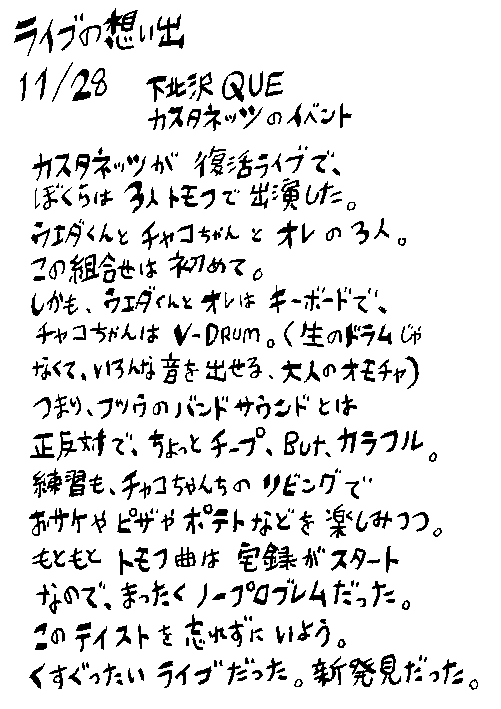 ライブの想い出
11/28 下北沢QUE
カスタネッツのイベント
カスタネッツが復活ライブで、
ぼくらは3人トモフで出演した。
ウエダくんとチャコちゃんとオレの3人。
この組合せは初めて。
しかも、ウエダくんとオレはキーボードで、
チャコちゃんはV-DRUM。(生のドラムじゃ
なくて、いろんな音を出せる、大人のオモチャ)
つまり、フツウのバンドサウンドとは
正反対で、ちょっとチープ、But、カラフル。
練習も、チャコちゃんちのリビングで
おサケやピザやポテトなどを楽しみつつ。
もともとトモフ曲は宅録がスタート
なので、まったくノープロブレムだった。
このテイストを忘れずにいよう。
くすぐったいライブだった。新発見だった。